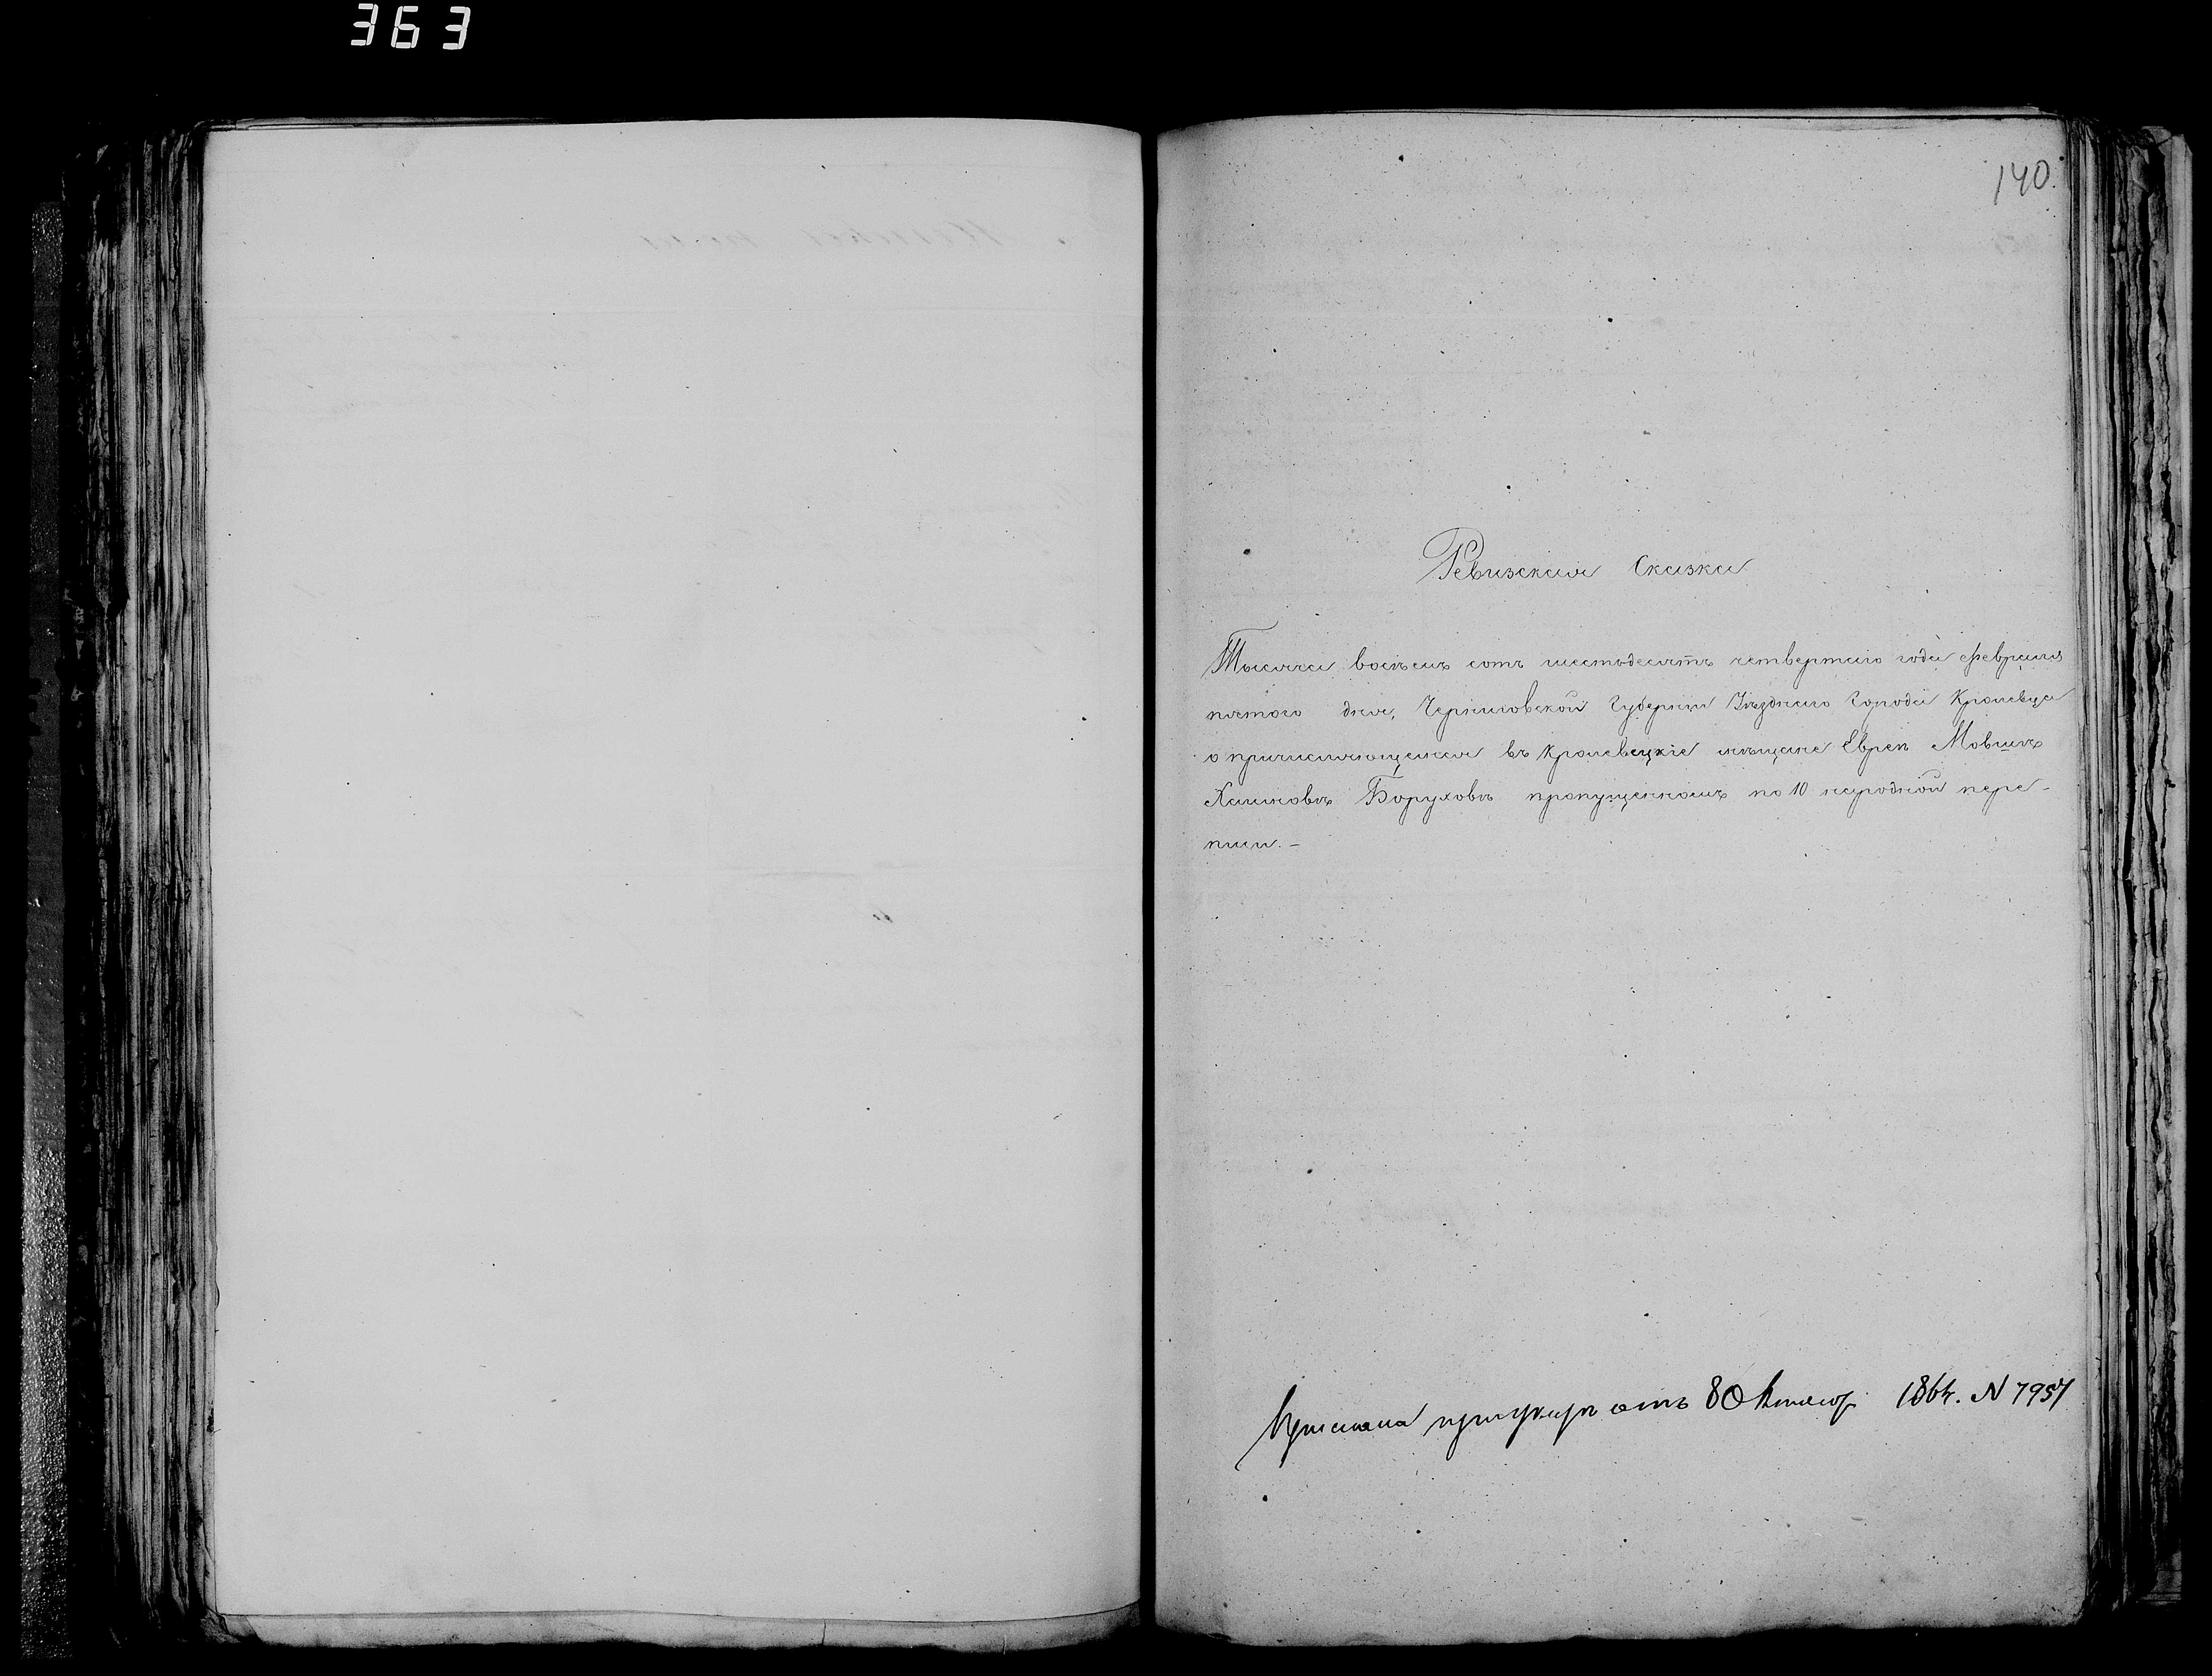 363
140.
Ревизская Сказка
Тысяча восемь сотъ шестьдесятъ четвертаго года февраля
пятого дня, Черниговской Губерніи Уѣзднаго Города Кролевца
о причисляющемся въ Кролевецкіе мѣщане Евреѣ Мовшѣ
Хаимовѣ Боруховѣ пропущенномъ по 10 народной пере-
писи. –
при отъ 8 1864. N 7957